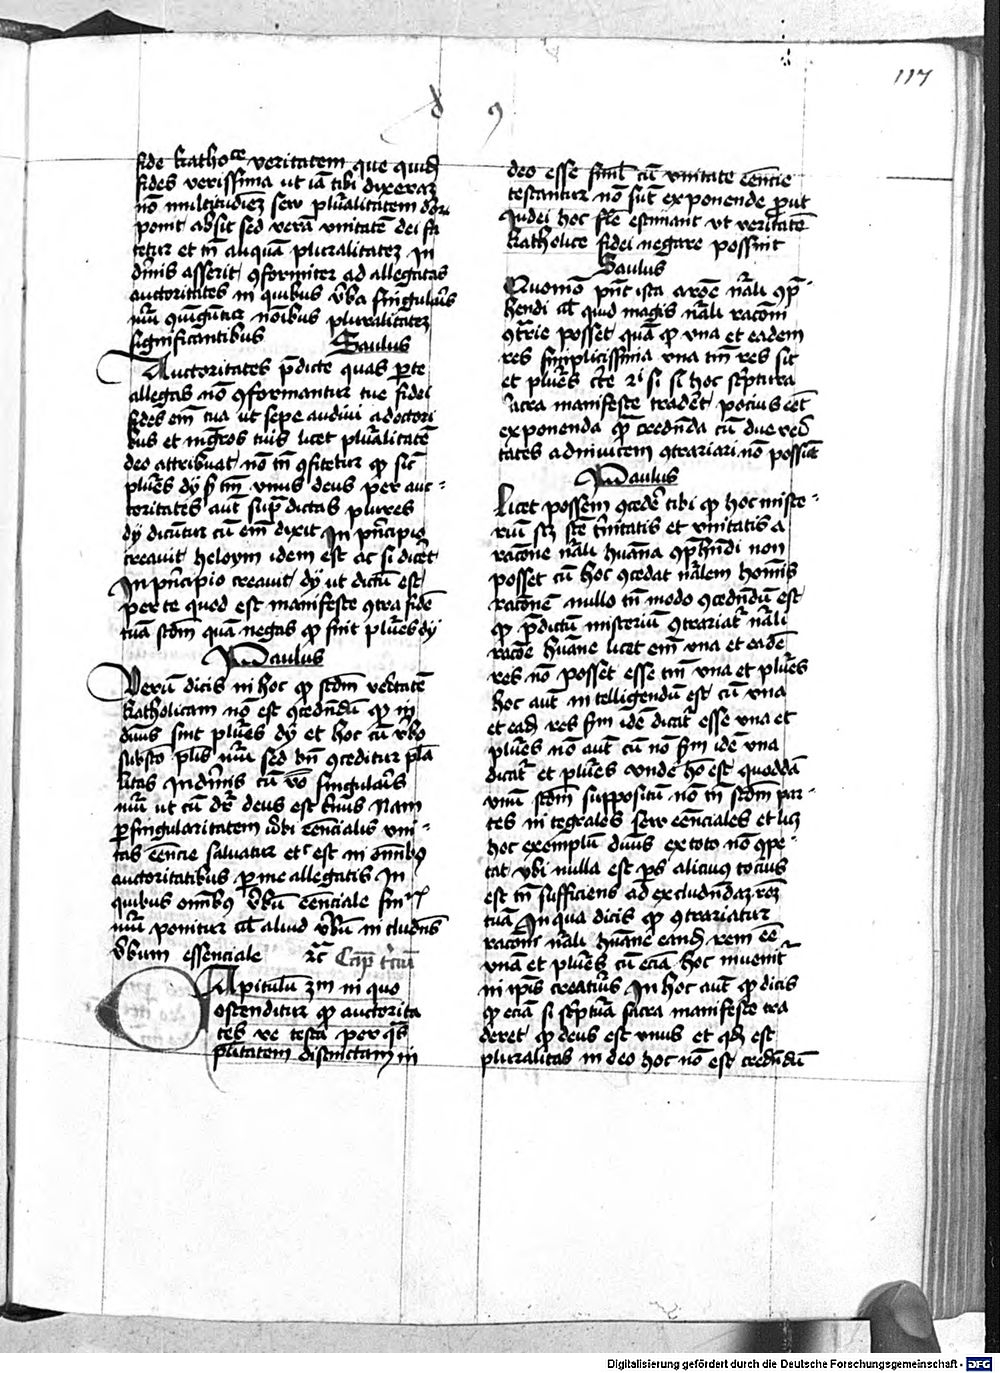 117
d 9
fide katholice veritatem que quidem
fides verissima ut iam tibi dixeram
non multitudinem seu pluralitatem deorum
ponit absit sed veram unitatem dei fa
tetur et tamen aliquam pluralitatem in
divinis asserit conformiter ad allegatas
auctoritates in quibus verba singularis
numeri coniunguntur nominibus pluralitatem
significantibus Saulus
Auctoritates predicte quas per te
allegas non conformantur tue fidei
fides enim tua ut sepe audivi a doctori
bus et magistris tuis licet pluralitatem
deo attribuat non tamen confitetur quod sint
plures dij sed tantum unus deus per auc-
toritates autem supradictas plures
dij dicuntur cum enim dixit In principio
creavit heloym idem est ac si diceret
In principio creavit dij ut dictum est
per te quod est manifeste contra fidem
tuam secundum quam negas quod sint plures dij
Paulus
Verum dicis in hoc quod secundum veritatem
katholicam non est concedendum quod in
divinis sint plures dij et hoc cum verbo
substantivo pluralis numeri sed bene conceditur plura
litas in divinis cum verbo singularis
numeri ut cum dicitur deus est trinus Nam
per singularitatem verbi essencialis uni-
tas essencie salvatur et est in omnibus
auctoritatibus per me allegatis In
quibus omnibus verbum essenciale singularis
numeri ponitur vel aliud verbum includens
verbum essenciale etc Capitulum tercium
Capitulum 3m in quo
ostenditur quod auctorita
tes veteris testamenti per quas
pluralitatem distinctam in
deo esse simul cum unitate essencie
testantur non sunt exponende prout
Judei hoc false estimant ut veritatem
katholice fidei negare possint
Saulus
Quomodo possunt ista a racione naturali compre-
hendi vel quid magis naturali racioni
contrarie posset quam quod una et eadem
res simplicissima una tantum res sit
et plures certe etiam si si hoc scriptura
sacra manifeste traderet pocius esset
exponenda quam credenda cum due veri
tates adinvicem contrariari non possint
Paulus
Licet possem concedere tibi quod hoc miste-
rium scilicet sancte trinitatis et unitatis a
racione naturali humana comprehendi non
posset cum hoc concedat naturalem hominis
racionem nullo tamen modo concedendum est
quod predictum misterium contrariatur naturali
racioni humane licet enim una et eadem
res non posset esse tantum una et plures
hoc autem intelligendum est cum una
et eadem res secundum idem dicatur esse una et
plures non autem cum non secundum idem una
dicatur et plures unde homo est quoddam
unum secundum suppositum non tamen secundum par-
tes integrales seu essenciales et licet
hoc exemplum divinis ex toto non compe-
tat ubi nulla est pars alicuius tocius
est tamen sufficiens ad excludendam racionem
tuam In qua dicis quod contrariatur
racioni naturali humane eandem rem esse
unam et plures cum eciam hoc invenitur
in ipsis creaturis In hoc autem quod dicis
quod eciam si scriptura sacra manifeste tra
deret quod deus est unus et quod est
pluralitas in deo hoc non est credendum
Digitalisierung gefördert durch die Deutsche Forschungsgemeinschaft - DFG